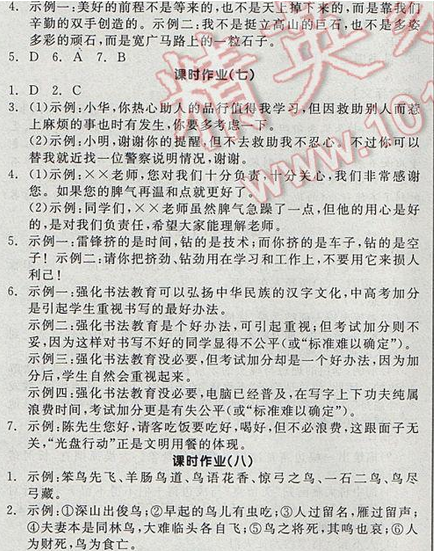 4. 示例一:美好的前程不是等来的,也不是天上掉下来的,而是靠我们
辛勤的双手创造的。示例二:我不是挺立高山的巨石,也不是多姿
多彩的顽石,而是宽广马路上的一粒石子。
5. D 6. A 7. B
课时作业(七)
1. D 2. C
3. (1)示例:小华,你热心助人的品行值得我学习,但因救助别人而惹
上麻烦的事也时有发生,你要多考虑一下。
(2)示例:小明,谢谢你的提醒,但不去救助我不忍心。不过你可以
替我就近找一位警察说明情况,谢谢。
4. (1)示例:××老师,您对我们十分负责、十分关心,我们非常感谢
您。如果您的脾气再温和点就更好了。
(2)示例:同学们,××老师虽然脾气急躁了一点,但他的用心是好
的,是对我们负责任,希望大家能理解老师。
5. 示例一:雷锋挤的是时间,钻的是技术;而你挤的是车子,钻的是空
子! 示例二:请你把挤劲、钻劲用在学习和工作上,不要用它来损人
利己!
6. 示例一:强化书法教育可以弘扬中华民族的汉字文化,中高考加分
是引起学生重视书写的最好办法。
示例二:强化书法教育是个好办法,可引起重视;但考试加分则不
妥,因为这样对书写不好的同学显得不公平(或“标准难以确定”)。
示例三:强化书法教育没必要,但考试加分却是一个好办法,因为加
分后,学生自然会重视起来。
示例四:强化书法教育没必要,电脑已经普及,在写字上下功夫纯属
浪费时间,考试加分更是有失公平(或“标准难以确定”)。
7. 示例:陈先生您好,请客吃饭要吃好,喝好,但不必浪费,这跟面子无
关,“光盘行动”正是文明用餐的体现。
课时作业(八)
1. 示例:笨鸟先飞、羊肠鸟道、鸟语花香、惊弓之鸟、一石二鸟、鸟尽
弓藏。
2. 示例:①深山出俊鸟;②早起的鸟儿有虫吃;③人过留名,雁过留声;
④夫妻本是同林鸟,大难临头各自飞;⑤鸟之将死,其鸣也哀;⑥人
为财死,鸟为食亡。